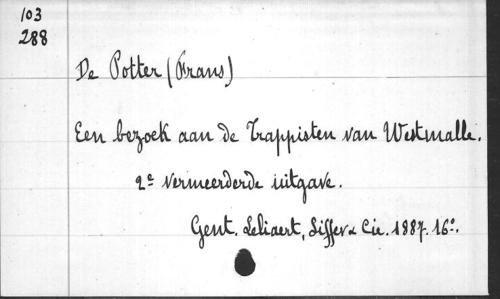 103
288
De Potter (Frans)
Een bezoek aan de Trappisten van Westmalle.
2e vermeerderde uitgave.
Gent. Leliaert, Siffer & Cie. 1887. 16o.